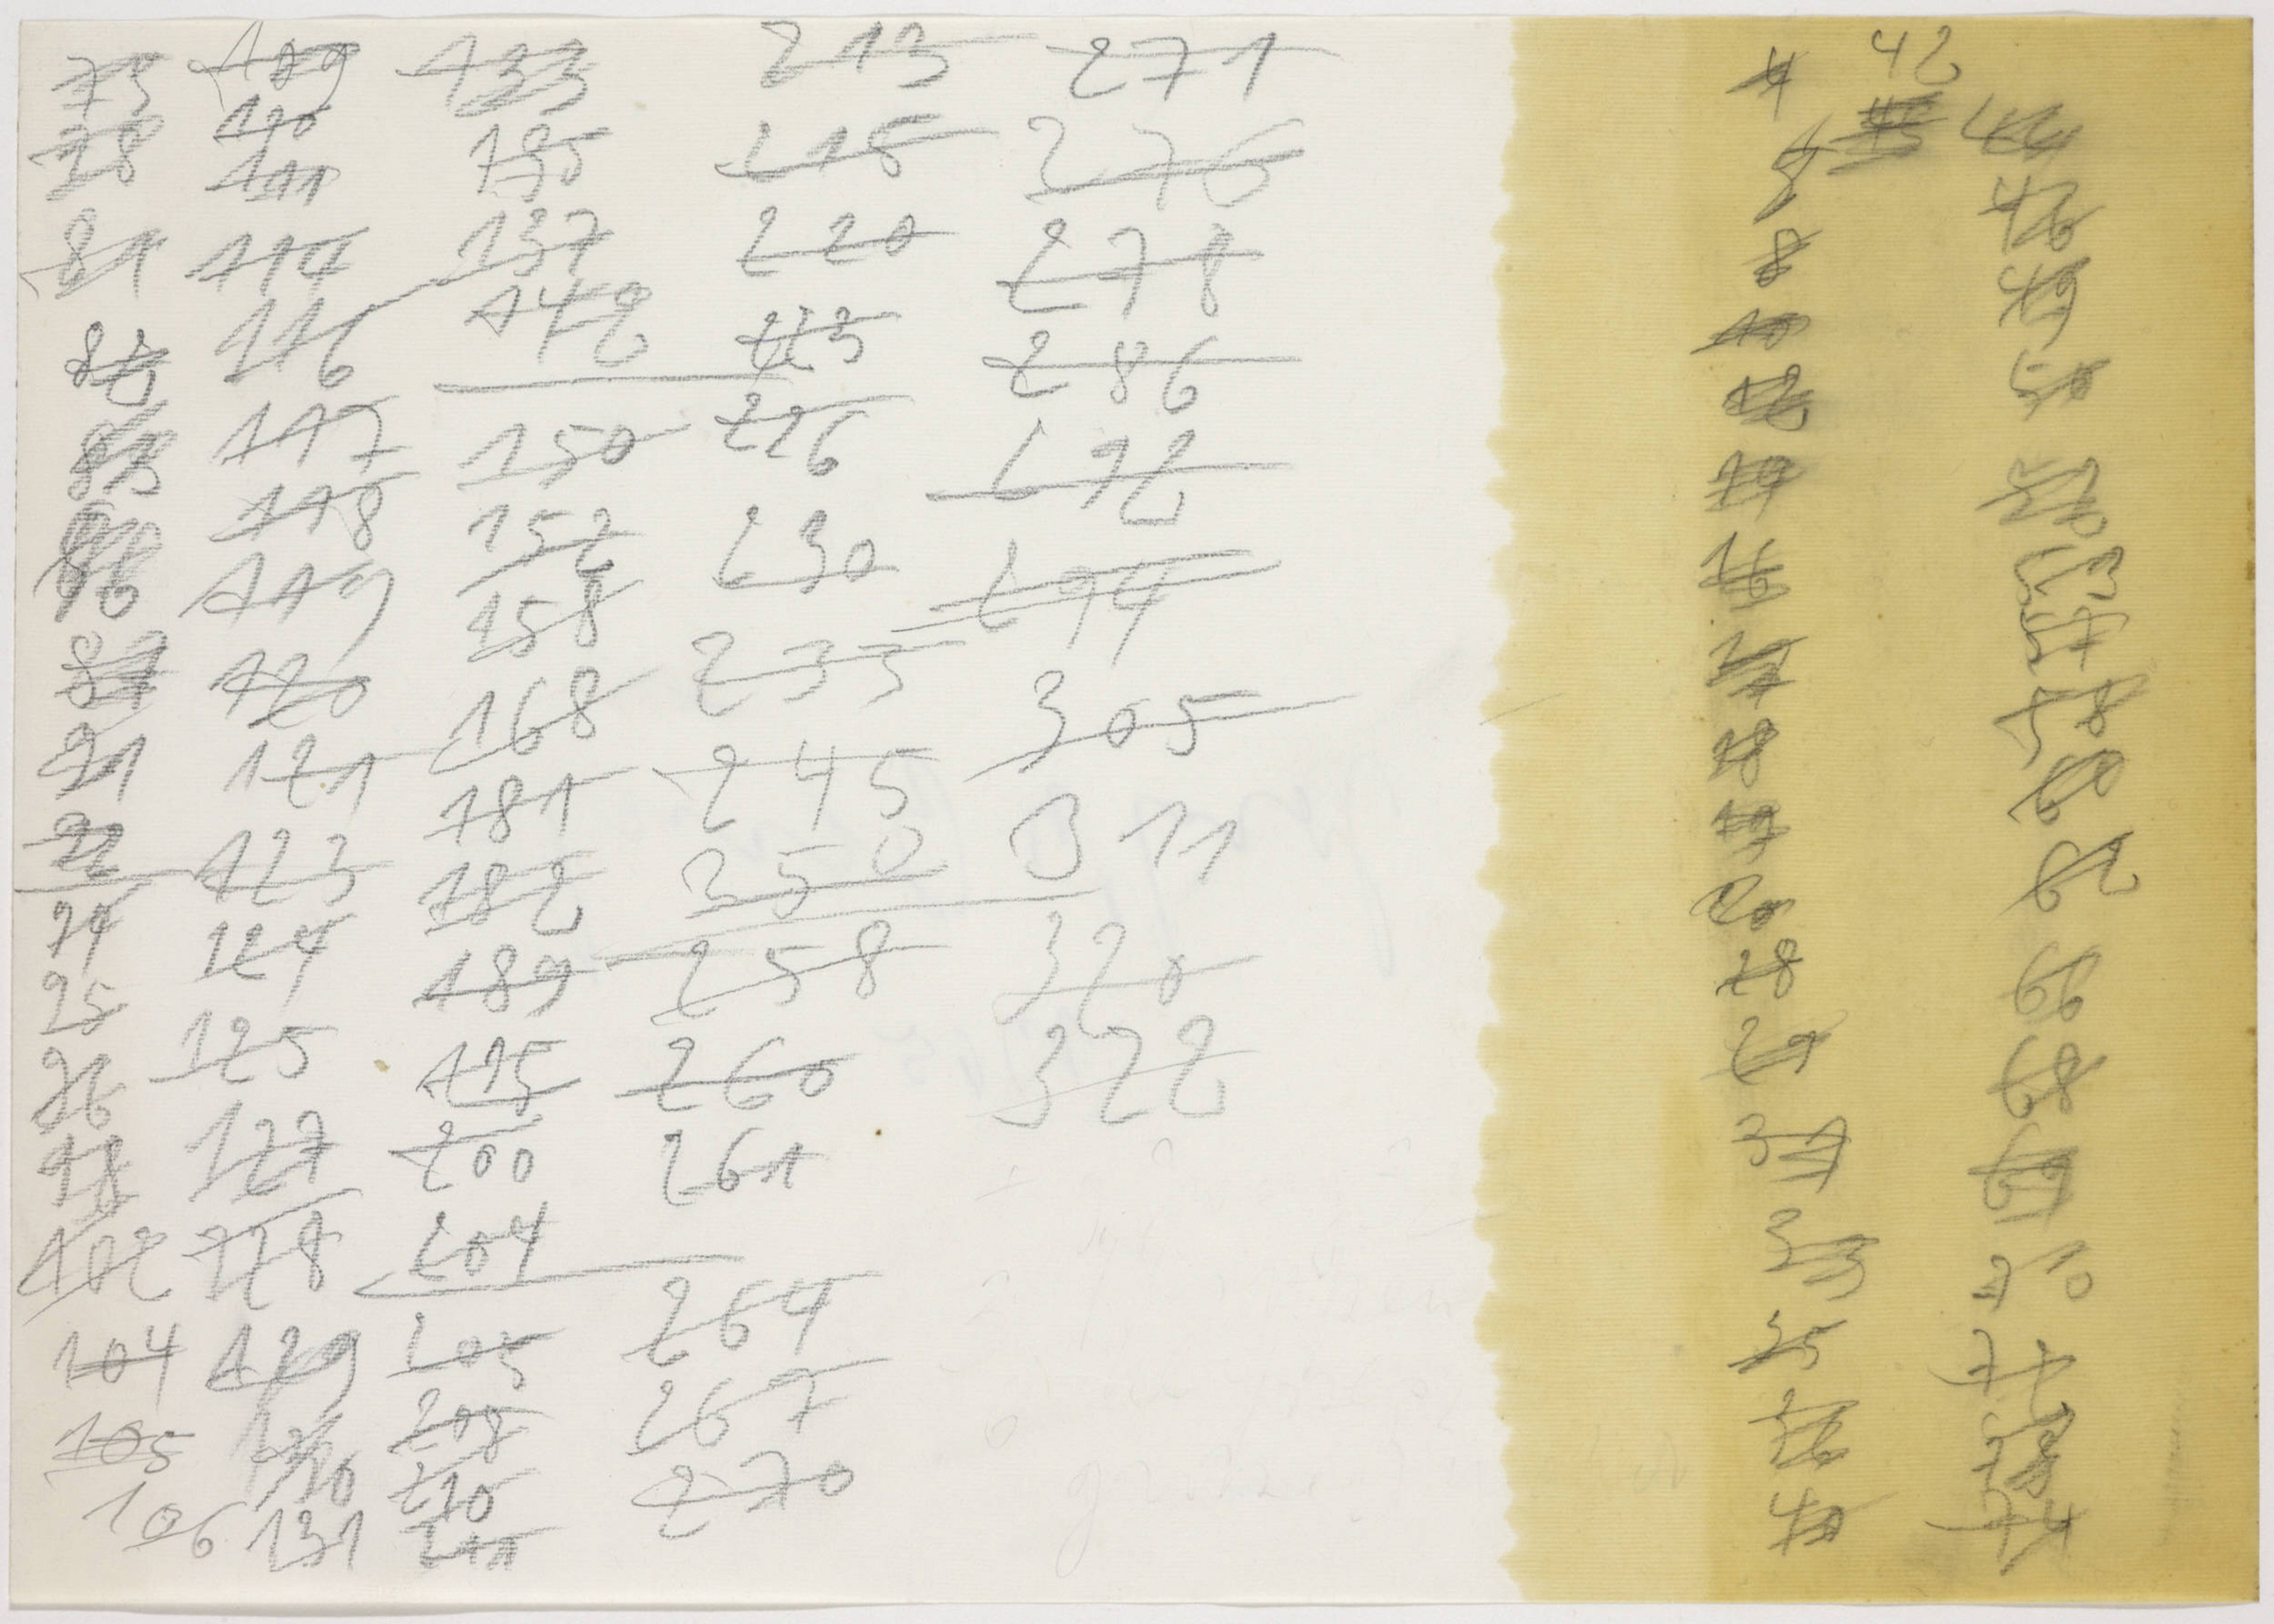 75
78
81
83
85
86
87
91
92
94
95
96
98
102
104
105
106
109
110
111
114
116
117
118
119
120
121
123
124
125
127
128
129
130
131
133
135
137
142
150
152
158
168
181
182
189
195
200
204
205
208
210
211
213
218
220
223
226
230
233
245
250
258
260
261
264
267
270
271
276
278
286
292
294
305
311
320
322
4
8
10
12
14
16
17
18
19
20
28
29
31
33
35
36
40
42
45
44
46
49
50
52
53
57
58
60
62
66
68
69
70
71
73
74